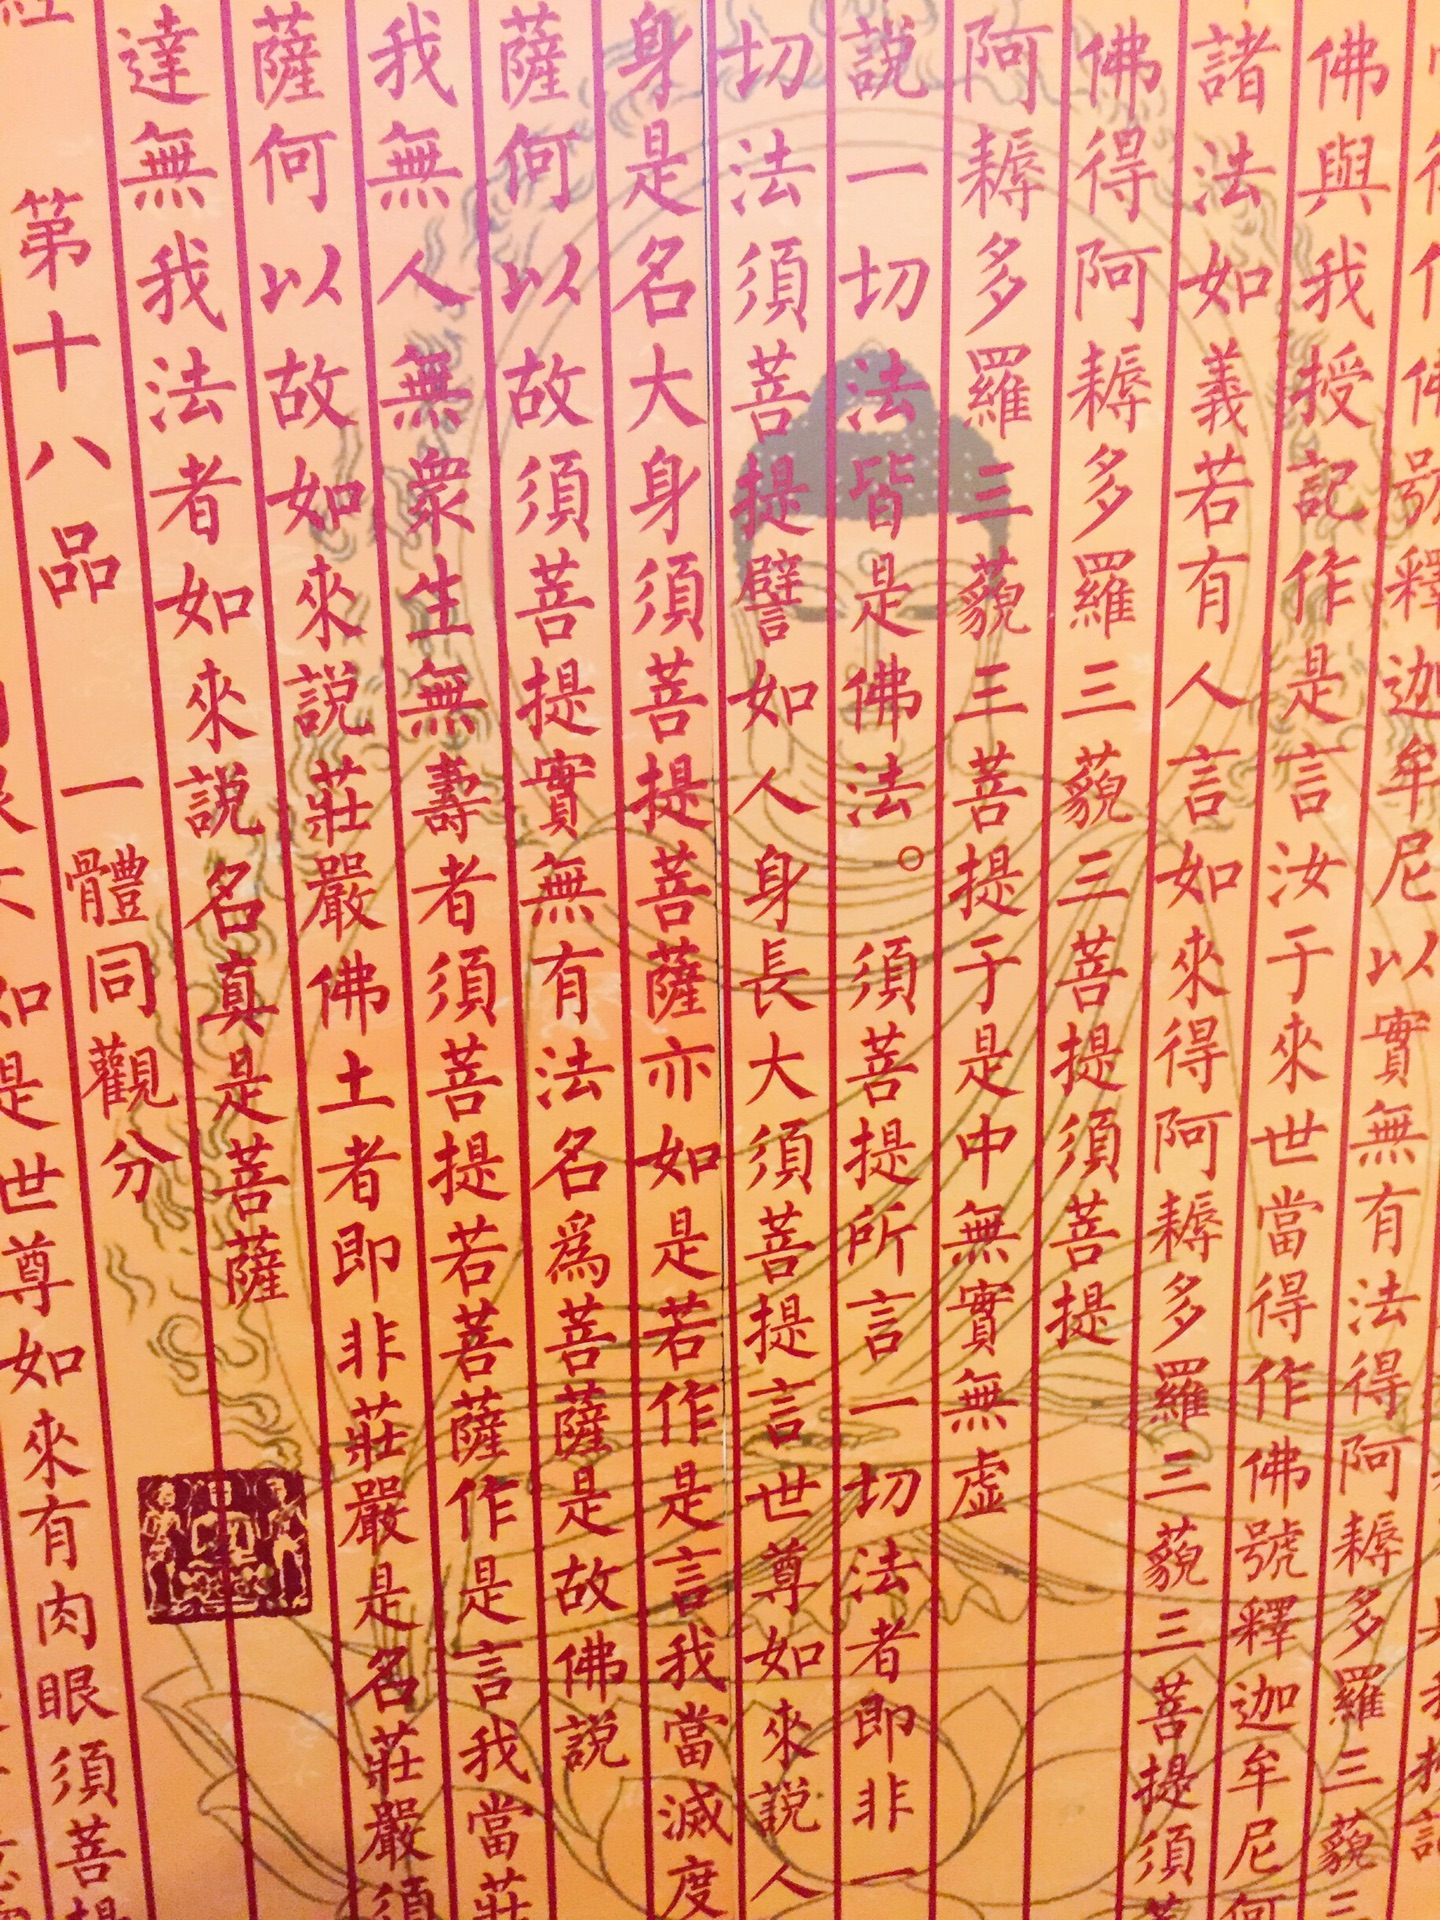 佛號釋迦牟尼以實無有法得阿耨多羅三藐三
佛與我授記作是言汝于來世當得作佛號釋迦牟尼何
諸法如義若有人言如來得阿耨多羅三藐三菩提須菩
佛得阿耨多羅三藐三菩提須菩提
阿耨多羅三藐三菩提于是中無實無虛
說一切法皆是佛法。須菩提所言一切法者即非一
切法須菩提譬如人身長大須菩提言世尊如來說人
身是名大身須菩提菩薩亦如是若作是言我當滅度
薩何以故須菩提實無有法名爲菩薩是故佛說
我無人無衆生無壽者須菩提若菩薩作是言我當莊
薩何以故如來說莊嚴佛土者即非莊嚴是名莊嚴須
達無我法者如來說名真是菩薩
第十八品 一體同觀分
如是世尊如來有肉眼須菩提